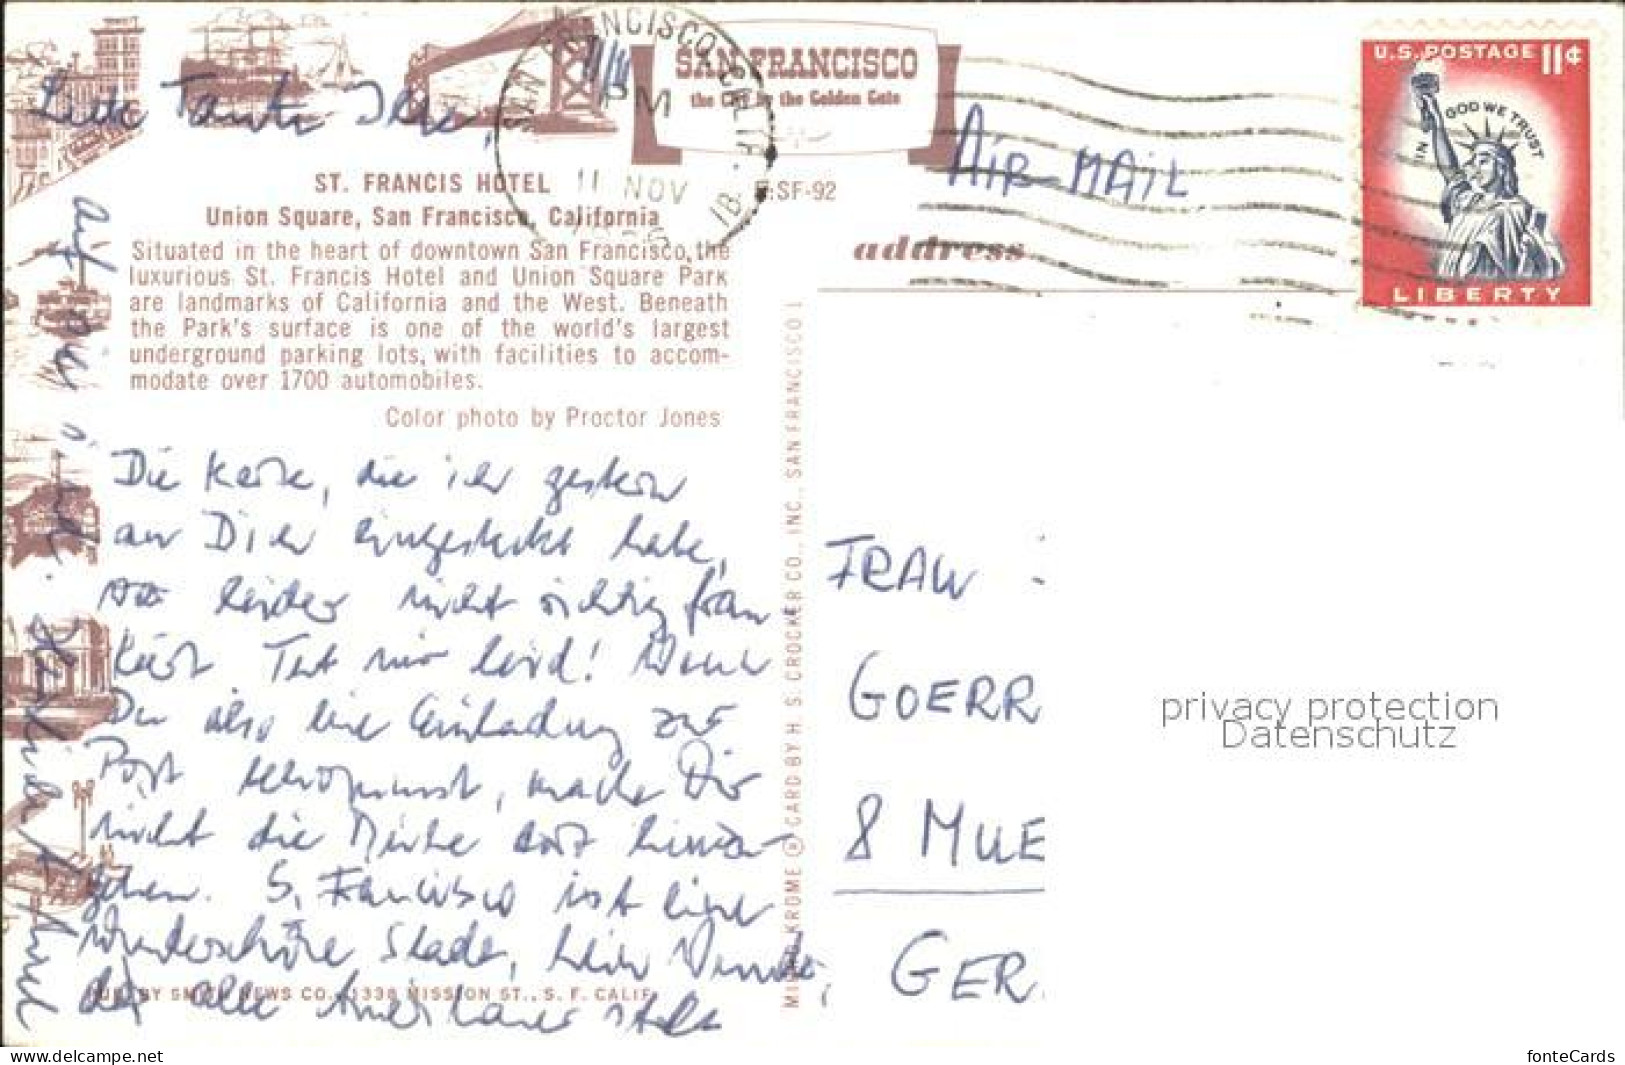 SAN FRANCISCO
the City by the Golden Gate
Liebe Tante Ilse,
SAN FRANCISCO, CALIF.
PM
11 NOV
ST. FRANCIS HOTEL
E:SF-92
Union Square, San Francisco, California
Situated in the heart of downtown San Francisco, the
luxurious St. Francis Hotel and Union Square Park
are landmarks of California and the West. Beneath
the Park's surface is one of the world's largest
underground parking lots, with facilities to accom-
modate over 1700 automobiles.
Color photo by Proctor Jones
Die Karte, die ich gestern
an Dich eingesteckt habe,
leider nicht richtig fran
kiert. Tut mir leid! Wenn
Du also eine Einladung zur
Post bekommst, mache Dir
nicht die Mühe dort hinzu-
gehen. S. Francisco ist eine
wunderschöne Stadt, kein Wunder,
daß alle Amerikaner stolz
auf sie sind.
PUB. BY SMITH NEWS CO., 1336 MISSION ST., S. F. CALIF.
MIKE KROME ® CARD BY H. S. CROCKER CO., INC., SAN FRANCISCO 1
AIR MAIL
address
U.S. POSTAGE 11¢
IN GOD WE TRUST
LIBERTY
FRAU
GOERR
8 MUE
GER
privacy protection
Datenschutz
www.delcampe.net
fonteCards